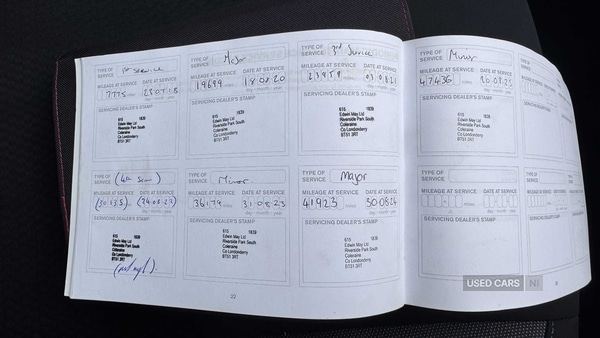 TYPE OF SERVICE 1st Service
MILEAGE AT SERVICE DATE AT SERVICE
7775 miles
day - month - year
SERVICING DEALER'S STAMP
615 1839
Edwin May Ltd
Riverside Park South
Coleraine
Co Londonderry
BT51 3RT
TYPE OF SERVICE Major
MILEAGE AT SERVICE DATE AT SERVICE
19699 miles 18 08 20
day - month - year
SERVICING DEALER'S STAMP
615 1839
Edwin May Ltd
Riverside Park South
Coleraine
Co Londonderry
BT51 3RT
TYPE OF SERVICE 3rd Service
MILEAGE AT SERVICE DATE AT SERVICE
23959 miles
day - month - year
SERVICING DEALER'S STAMP
615 1839
Edwin May Ltd
Riverside Park South
Coleraine
Co Londonderry
BT51 3RT
TYPE OF SERVICE Minor
MILEAGE AT SERVICE DATE AT SERVICE
47436 miles 20 08 25
day - month - year
SERVICING DEALER'S STAMP
615 1839
Edwin May Ltd
Riverside Park South
Coleraine
Co Londonderry
BT51 3RT
TYPE OF SERVICE
MILEAGE AT SERVICE
SERVICING DEALER'S STAMP
TYPE OF SERVICE (4th Serv)
MILEAGE AT SERVICE DATE AT SERVICE
day - month - year
SERVICING DEALER'S STAMP
615 1839
Edwin May Ltd
Riverside Park South
Coleraine
Co Londonderry
BT51 3RT
TYPE OF SERVICE Minor
MILEAGE AT SERVICE DATE AT SERVICE
36179 miles 31 08 23
day - month - year
SERVICING DEALER'S STAMP
615 1839
Edwin May Ltd
Riverside Park South
Coleraine
Co Londonderry
BT51 3RT
TYPE OF SERVICE Major
MILEAGE AT SERVICE DATE AT SERVICE
41923 miles 30 08 24
day - month - year
SERVICING DEALER'S STAMP
615 1839
Edwin May Ltd
Riverside Park South
Coleraine
Co Londonderry
BT51 3RT
TYPE OF SERVICE
MILEAGE AT SERVICE DATE AT SERVICE
day - month - year
SERVICING DEALER'S STAMP
TYPE OF SERVICE
MILEAGE AT SERVICE
SERVICING DEALER'S STAMP
22
USED CARS NI